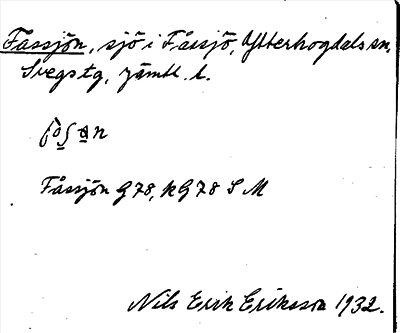 Fåssjön, sjö i Fåssjö, Ytterhogdals sn,
Svegs tg, Jämtl. l.
Fåssjön G 78, kG 78 S M
Nils Erik Eriksson 1932.